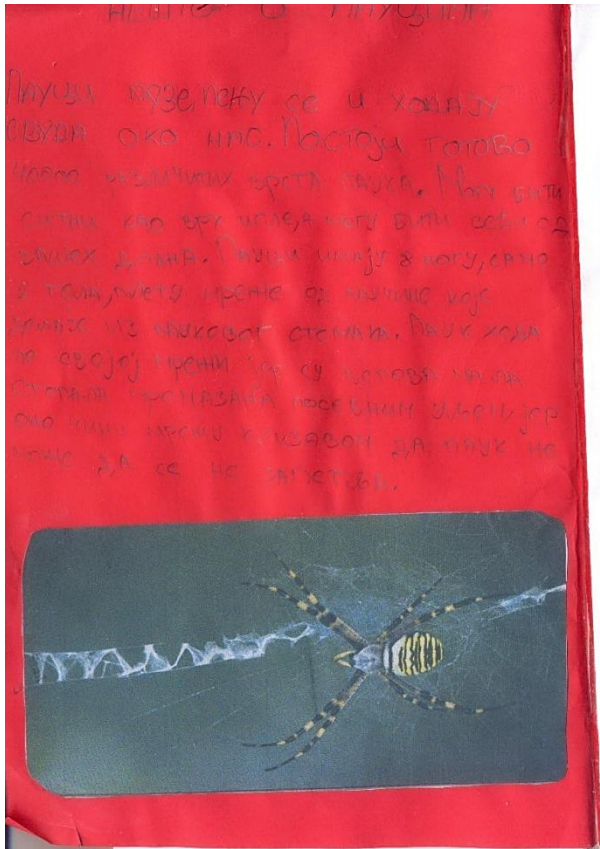 НЕШТО О ПАУЦИМА
ПАУЦИ ГАЗЕ, ПЕЊУ СЕ И ХОДАЈУ
СВУДА ОКО НАС. ПОСТОЈИ ГОТОВО
РАЗЛИЧИТИХ ВРСТА ПАУКА. МОГУ БИТИ
СИТНИ КАО ВРХ ИГЛЕ, А МОГУ БИТИ ВЕЋИ ОД
ВАШЕХ ДЛАНА. ПАУЦИ ИМАЈУ 8 НОГУ, САМО
2 ТЕЛА, ПЛЕТУ МРЕЖЕ ОД ПАУЧИНЕ КОЈЕ
ИЗ ПАУКОВОГ СТОМАКА. ПАУК ХОДА
ПО СВОЈОЈ МРЕЖИ ЈЕР СУ ЊЕГОВА МАЛА
СТОПАЛА ПРЕМАЗАНА ПОСЕБНИМ УЉЕМ ЈЕР
МРЕЖУ КЛИЗАВОМ ДА ПАУК НЕ
МОЖЕ ДА СЕ НЕ